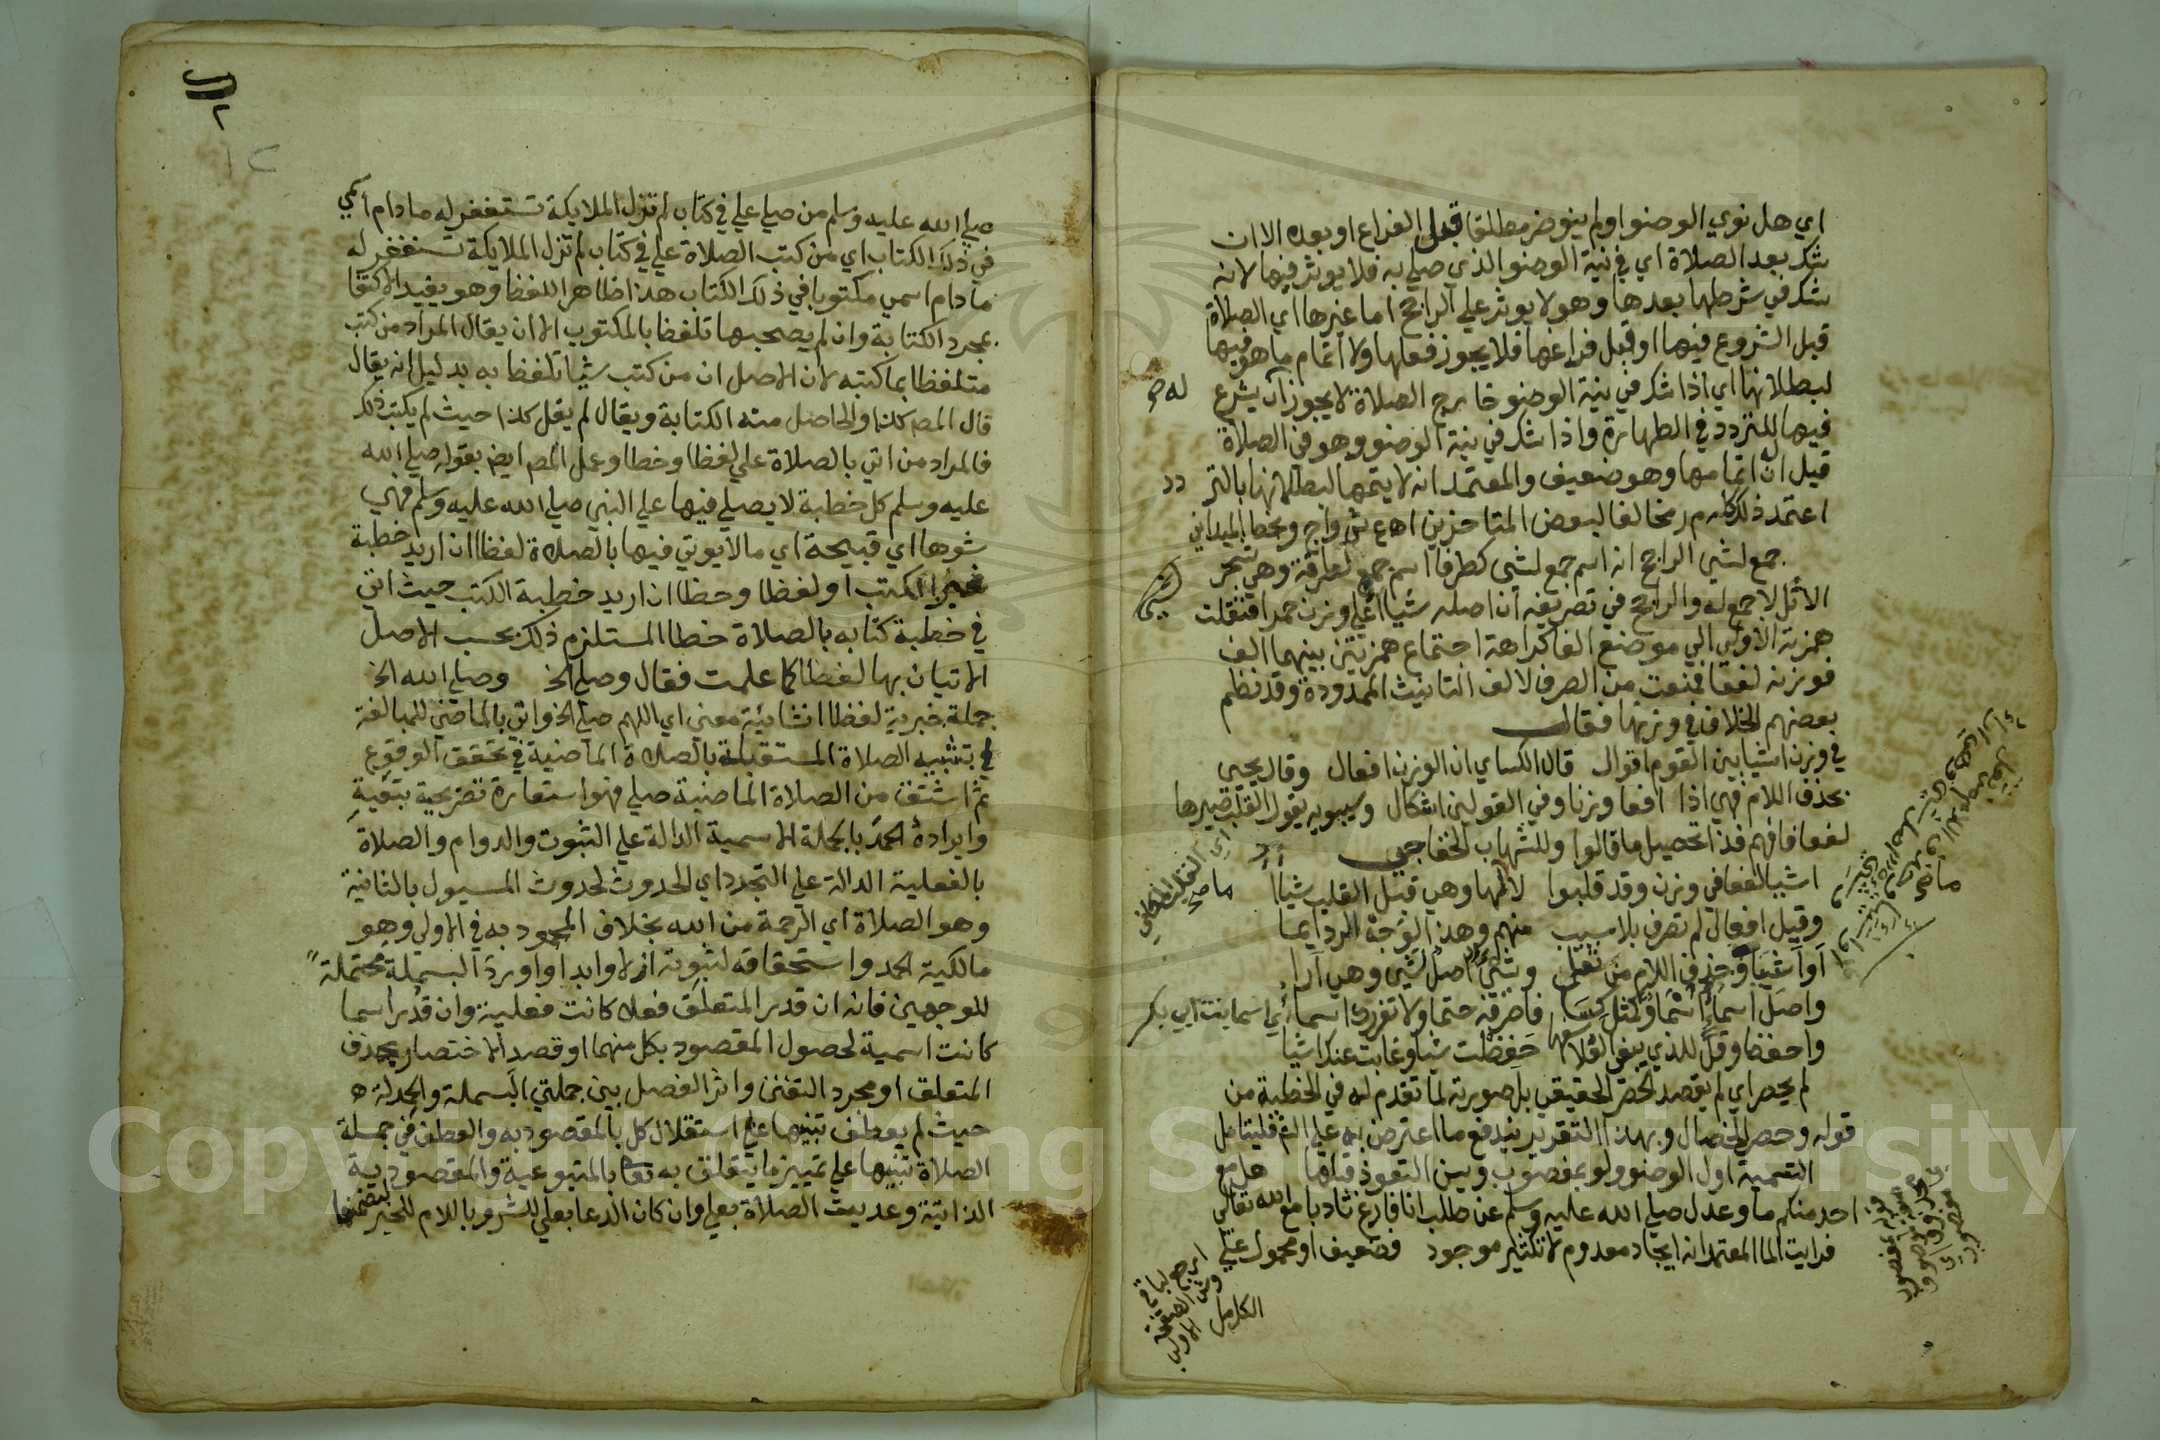 اي هل نوي الوضوا ولم ينو ضر مطلقا قبل الفراغ او بعده الا ان
شك بعد الصلاة اي في نية الوضو الذي صلي به فلا يوثر فيها لانه
شك في شرطها بعدها وهو لا يوثر علي الراجح اما غيرها اي الصلاة
قبل الشروع فيها او قبل فراغها فلا يجوز فعلها ولا اتمام ما هو فيها
لبطلانها اي اذا شك في نية الوضو خارج الصلاة لا يجوز ان يشرع
فيها للتردد في الطهارة واذا شك في نية الوضو وهو في الصلاة
قيل ان اتمامها وهو ضعيف والمعتمد انه لا يتمها لبطلانها بالتر دد
اعتمد ذلك م ر مخالفا لبعض المتاخرين اه ع ش واج وبخط الميداني
جمع لشي الراجح انه اسم جمع لشي كطرفا اسم جمع لطرفة وهي شجر
الاثل لا جمع له والراجح في تصريفه ان اصله شيااعلي وزن حمرا فنقلت
همزته الاولي الي موضع الفا كراهة اجتماع همزتين بينهما الف
فوزنه لفعا فمنعت من الصرف لالف التانيث الممدودة وقد نظم
بعضهم الخلاف في وزنها فقال
في وزن اشيا بين القوم اقوال قال الكساي ان الوزن افعال وقال يحيي
بحذف اللام فهي اذا افعا وزنا وفي القولين اشكال وسيبويه يقول القلب صيرها
لفعا فافهم فذا تحصيل ما قالوا وللشهاب الخفاجي
اشيا لفعا في وزن وقد قلبوا لامها وهي قبل القلب شياا
وقيل افعال لم تصرف بلا سبب منهم وهذا لوجه الرد ايما
او اشيا وحذف اللام من ثقل وشئ اصل لشي وهي ارا
واصل اسما اسما وكمثل كسا فاصرفه حتما ولا تغررك اسما اي اسما بنت ابي بكر
واحفظ وقل للذي ينفي العلا سفها حفظت شيا وغابت عنك اشيا
لم يحصر اي لم يقصد الحصر الحقيقي بل صورته لما تقدم له في الخطبة من
قوله وحصر الخصال وبهذا التقرير يندفع ما اعترض به علي الش فليتامل
التسمية اول الوضو ولو بمغصوب وبين التعوذ قبلها هل مع
احد منكم ما وعدل صلي الله عليه وسلم عن طلب انا فارغ تادبا مع الله تعالي
فرايت الما المعتمد انه ايجاد معدوم لا تكثير موجود فضعيف او محمول علي
له صح
الكامل
صلي الله عليه وسلم من صلي علي في كتاب لم تزل الملايكة تستغفر له ما دام اسمي
في ذلك الكتاب اي من كتب الصلاة علي في كتاب لم تزل الملايكة تستغفر له
ما دام اسمي مكتوبا في ذلك الكتاب هذا ظاهر اللفظ وهو يفيد الاكتفا
بمجرد الكتابة وان لم يصحبها تلفظ بالمكتوب الا ان يقال المراد من كتب
متلفظا بما كتبه لان الاصل ان من كتب شيا تلفظ به بدليل انه يقال
قال المص كذا والحاصل منه الكتابة ويقال لم يقل كذا حيث لم يكتب ذلك
فالمراد من اتي بالصلاة علي لفظا وخطا وعمل المص ايض بقوله صلي الله
عليه وسلم كل خطبة لا يصلي فيها علي النبي صلي الله عليه وسلم فهي
شوها اي قبيحة اي ما لا يوتي فيها بالصلاة لفظا ان اريد خطبة
غير الكتب او لفظا وخطا ان اريد خطبة الكتب حيث اتي
في خطبة كتابه بالصلاة خطا المستلزم ذلك بحسب الاصل
الاتيان بها لفظا كما علمت فقال وصلي الخ وصلي الله الخ
جملة خبرية لفظا انشائية معني اي اللهم صلي الخ واتي بالماضي للمبالغة
في تشبيه الصلاة المستقبلة بالصلاة الماضية في تحقق الوقوع
ثم اشتق من الصلاة الماضية صلي فهو استعارة تصريحية تبعية
وايراده الحمد بالجملة الاسمية الدالة علي الثبوت والدوام والصلاة
بالفعلية الدالة علي التجدد اي الحدوث لحدوث المسيول بالثانية
وهو الصلاة اي الرحمة من الله بخلاف المحمود به في الاولي وهو
مالكية الحمد واستحقاقه لثبوته ازلا وابدا واورد البسملة محتملة
للوجهين فانه ان قدر المتعلق فعلا كانت فعلية وان قدر اسما
كانت اسمية لحصول المقصود بكل منهما او قصد الاختصار بحذف
المتعلق او مجرد التفنن واثر الفصل بين جملتي البسملة والحمدلة
حيث لم يعطف تنبيها علي استقلال كل بالمقصود به والعطف في جملة
الصلاة تنبيها علي تمييز ما يتعلق به تعا بالمتبوعية والمقصودية
الذاتية وعديت الصلاة بعلي وان كان الدعا بعلي للشر وباللام للخير لتضمنها